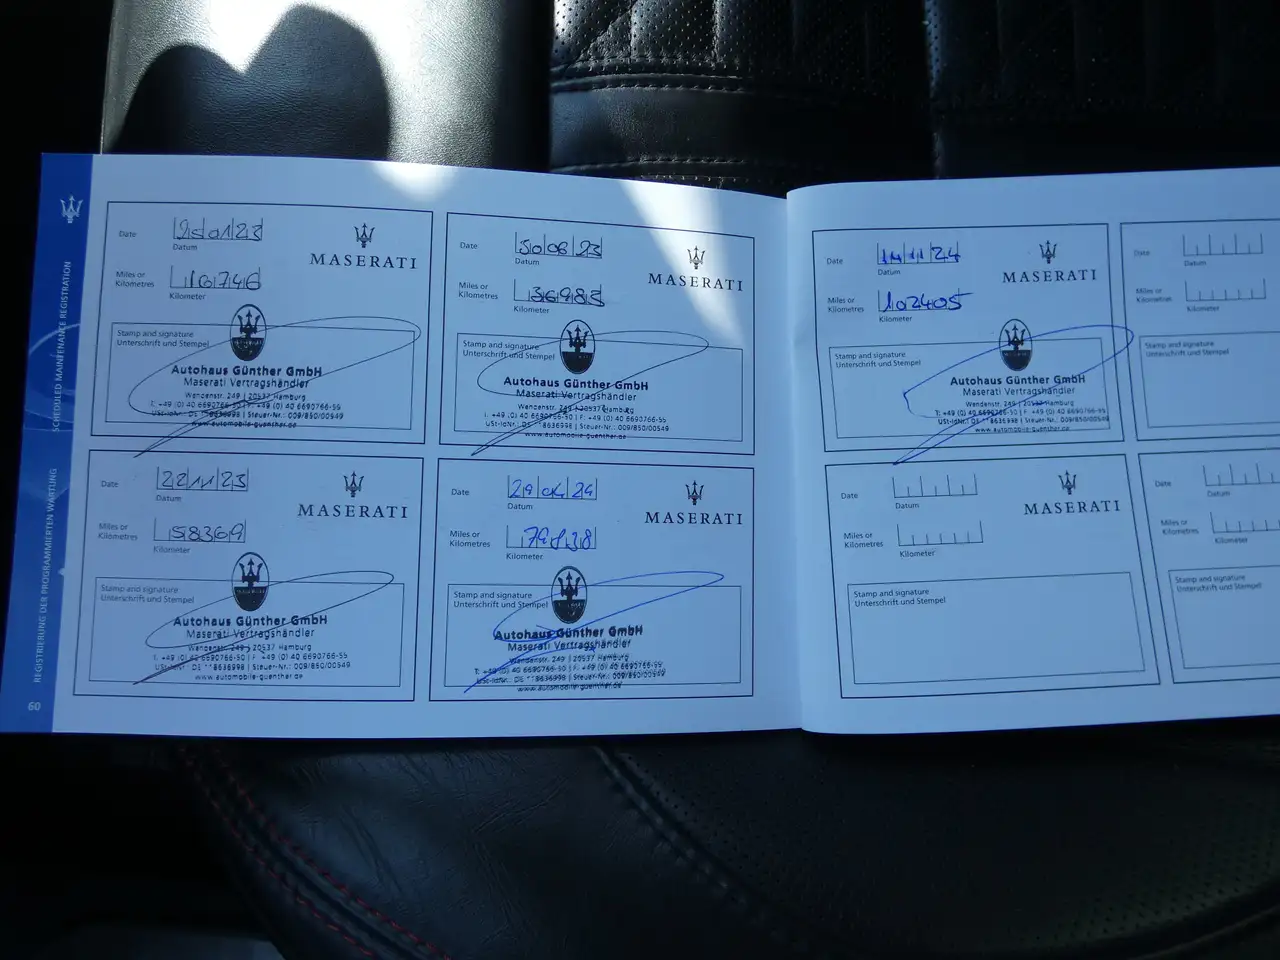 SCHEDULED MAINTENANCE REGISTRATION
REGISTRIERUNG DER PROGRAMMIERTEN WARTUNG
60
Date 25 01 23
Datum
MASERATI
Miles or
Kilometres 16746
Kilometer
Stamp and signature
Unterschrift und Stempel
Autohaus Günther GmbH
Maserati Vertragshändler
Wendenstr. 249 | 20537 Hamburg
T: +49 (0) 40 6690766-50 | F: +49 (0) 40 6690766-55
USt-IdNr.: DE 8636998 | Steuer-Nr.: 009/850/00549
www.automobile-guenther.de
Date 30 06 23
Datum
MASERATI
Miles or
Kilometres 36983
Kilometer
Stamp and signature
Unterschrift und Stempel
Autohaus Günther GmbH
Maserati Vertragshändler
Wendenstr. 249 | 20537 Hamburg
T: +49 (0) 40 6690766-50 | F: +49 (0) 40 6690766-55
USt-IdNr.: DE 8636998 | Steuer-Nr.: 009/850/00549
www.automobile-guenther.de
Date 22 11 23
Datum
MASERATI
Miles or
Kilometres 58369
Kilometer
Stamp and signature
Unterschrift und Stempel
Autohaus Günther GmbH
Maserati Vertragshändler
Wendenstr. 249 | 20537 Hamburg
T: +49 (0) 40 6690766-50 | F: +49 (0) 40 6690766-55
USt-IdNr.: DE 8636998 | Steuer-Nr.: 009/850/00549
www.automobile-guenther.de
Date 29 04 24
Datum
MASERATI
Miles or
Kilometres 79838
Kilometer
Stamp and signature
Unterschrift und Stempel
Autohaus Günther GmbH
Maserati Vertragshändler
Wendenstr. 249 | 20537 Hamburg
T: +49 (0) 40 6690766-50 | F: +49 (0) 40 6690766-55
USt-IdNr.: DE 8636998 | Steuer-Nr.: 009/850/00549
www.automobile-guenther.de
Date 14 11 24
Datum
MASERATI
Miles or
Kilometres 102405
Kilometer
Stamp and signature
Unterschrift und Stempel
Autohaus Günther GmbH
Maserati Vertragshändler
Wendenstr. 249 | 20537 Hamburg
T: +49 (0) 40 6690766-50 | F: +49 (0) 40 6690766-55
USt-IdNr.: DE 8636998 | Steuer-Nr.: 009/850/00549
www.automobile-guenther.de
Date
Datum
Miles or
Kilometres
Kilometer
Stamp and signature
Unterschrift und Stempel
Date
Datum
MASERATI
Miles or
Kilometres
Kilometer
Stamp and signature
Unterschrift und Stempel
Date
Datum
Miles or
Kilometres
Kilometer
Stamp and signature
Unterschrift und Stempel